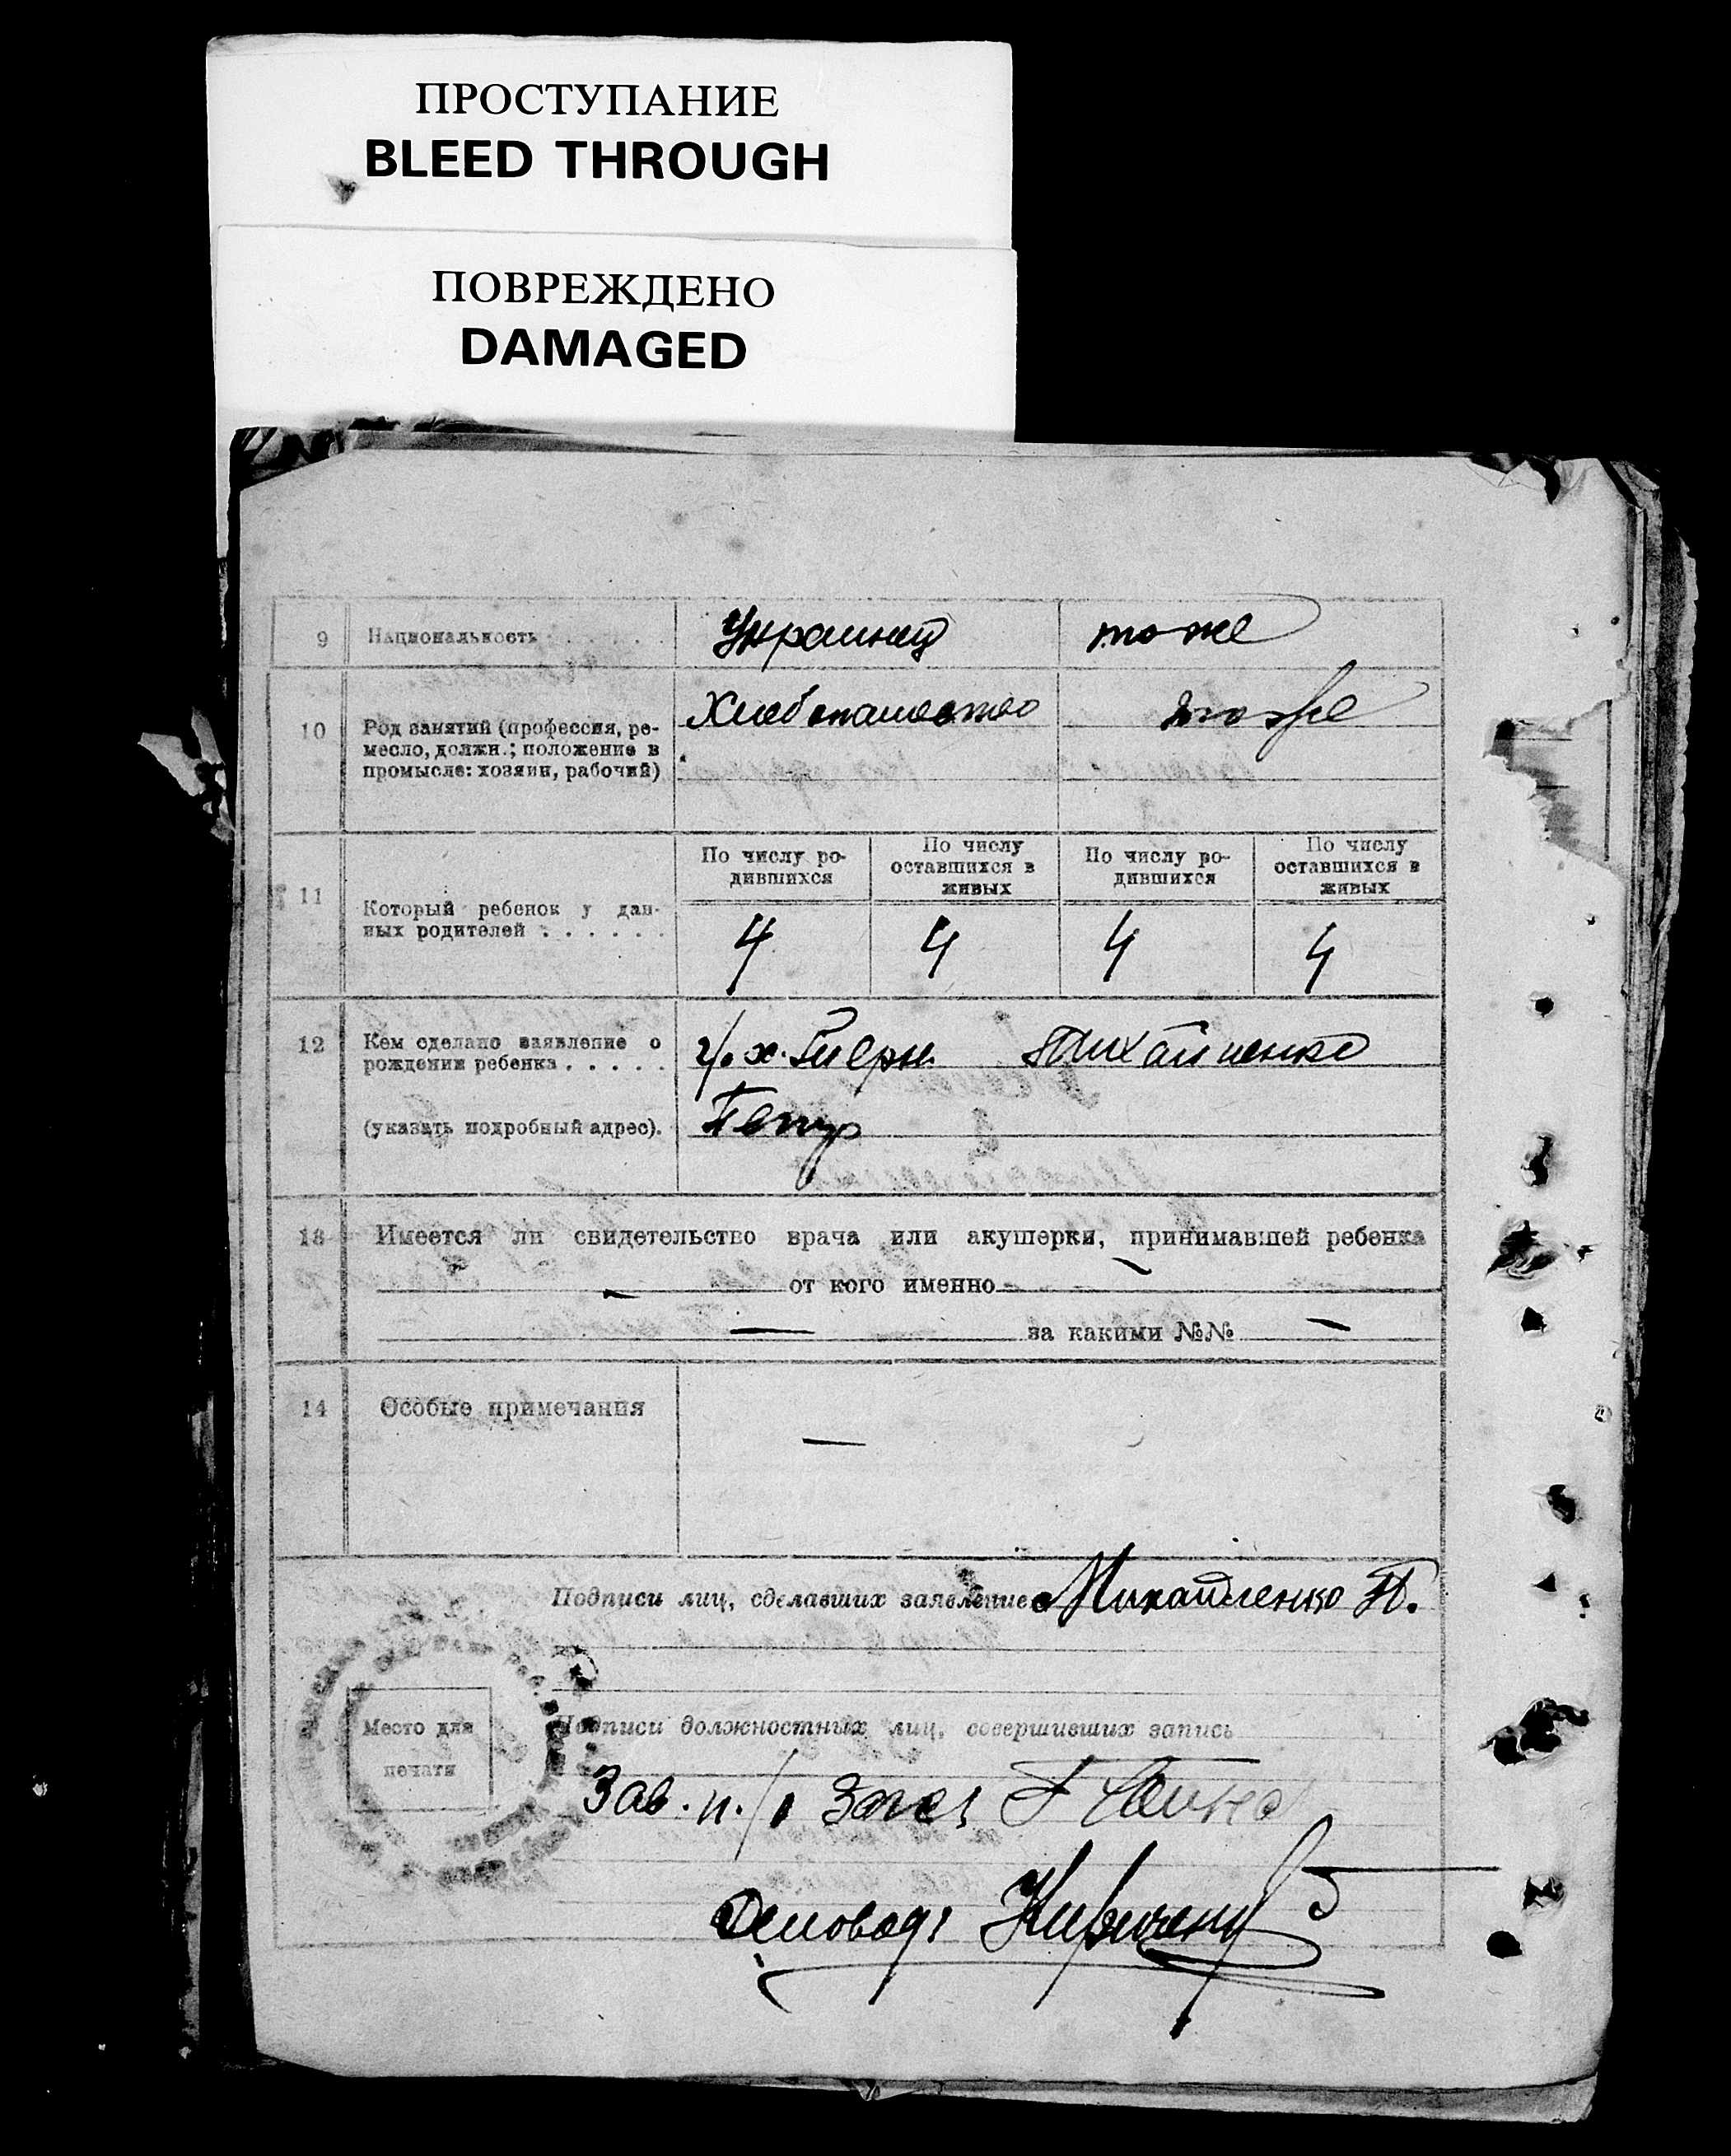 ПРОСТУПАНИЕ
BLEED THROUGH
ПОВРЕЖДЕНО
DAMAGED
9 Национальность . . . . Украинец тоже
10 Род занятий (профессия, ре-
месло, должн.; положение в
промысле: хозяин, рабочий)
Хлебопашество тоже
11 Который ребенок у дан-
ных родителей . . . . . .
По числу ро-
дившихся
По числу
оставшихся в
живых
По числу ро-
дившихся
По числу
оставшихся в
живых
4 4 4 4
12 Кем сделано заявление о
рождении ребенка . . . . .
(указать подробный адрес).
Михайленко
Петр
13 Имеется ли свидетельство врача или акушерки, принимавшей ребенка
— от кого именно —
— за какими №№ —
14 Особые примечания —
Подписи лиц, сделавших заявление Михайленко П.
Место для
печати
Подписи должностных лиц, совершивших запись
Зав. п./
Деловод: